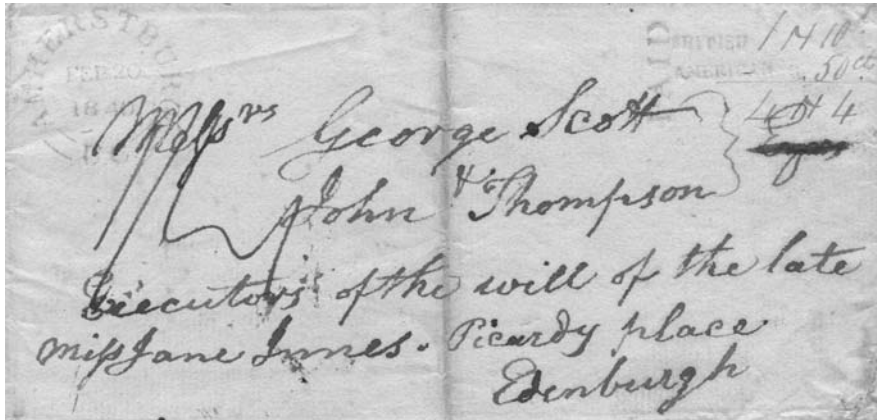 AMHERSTBURG
FEB. 20
184
PAID
BRITISH 1/4 10
AMERICAN 50ct
4 4
Messrs George Scott
& John Thompson
Executors of the will of the late
Miss Jane Innes. Picardy place
Edenburgh